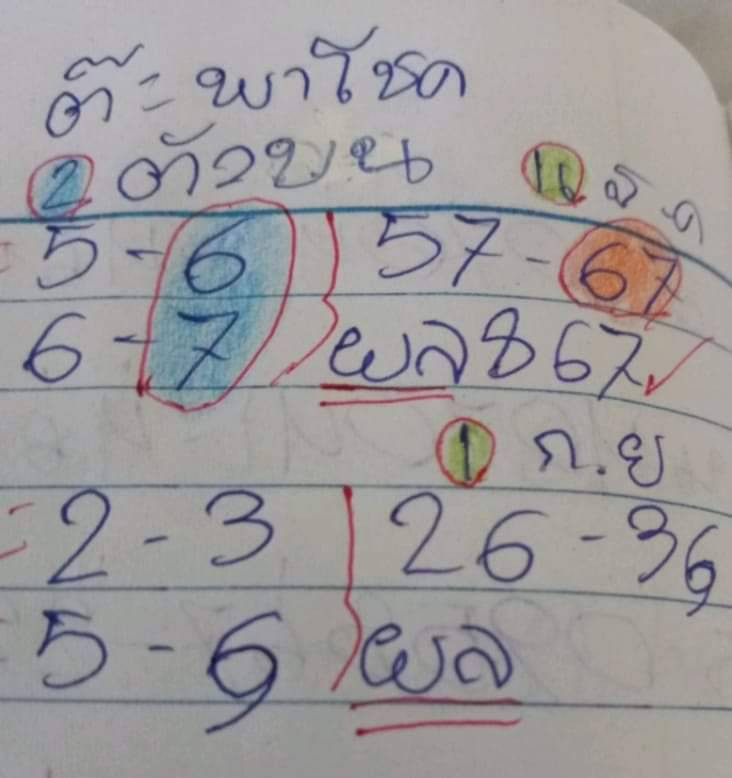 ต๊ะ พาโชค
2 ตัวบน 16 สค
5 - 6 57 - 67
6 - 7 ผล 867 ✓
1 ก.ย
= 2 - 3 26 - 36
5 - 6 ผล